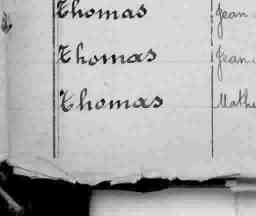 Thomas Jean
Thomas Jean
Thomas Mathe